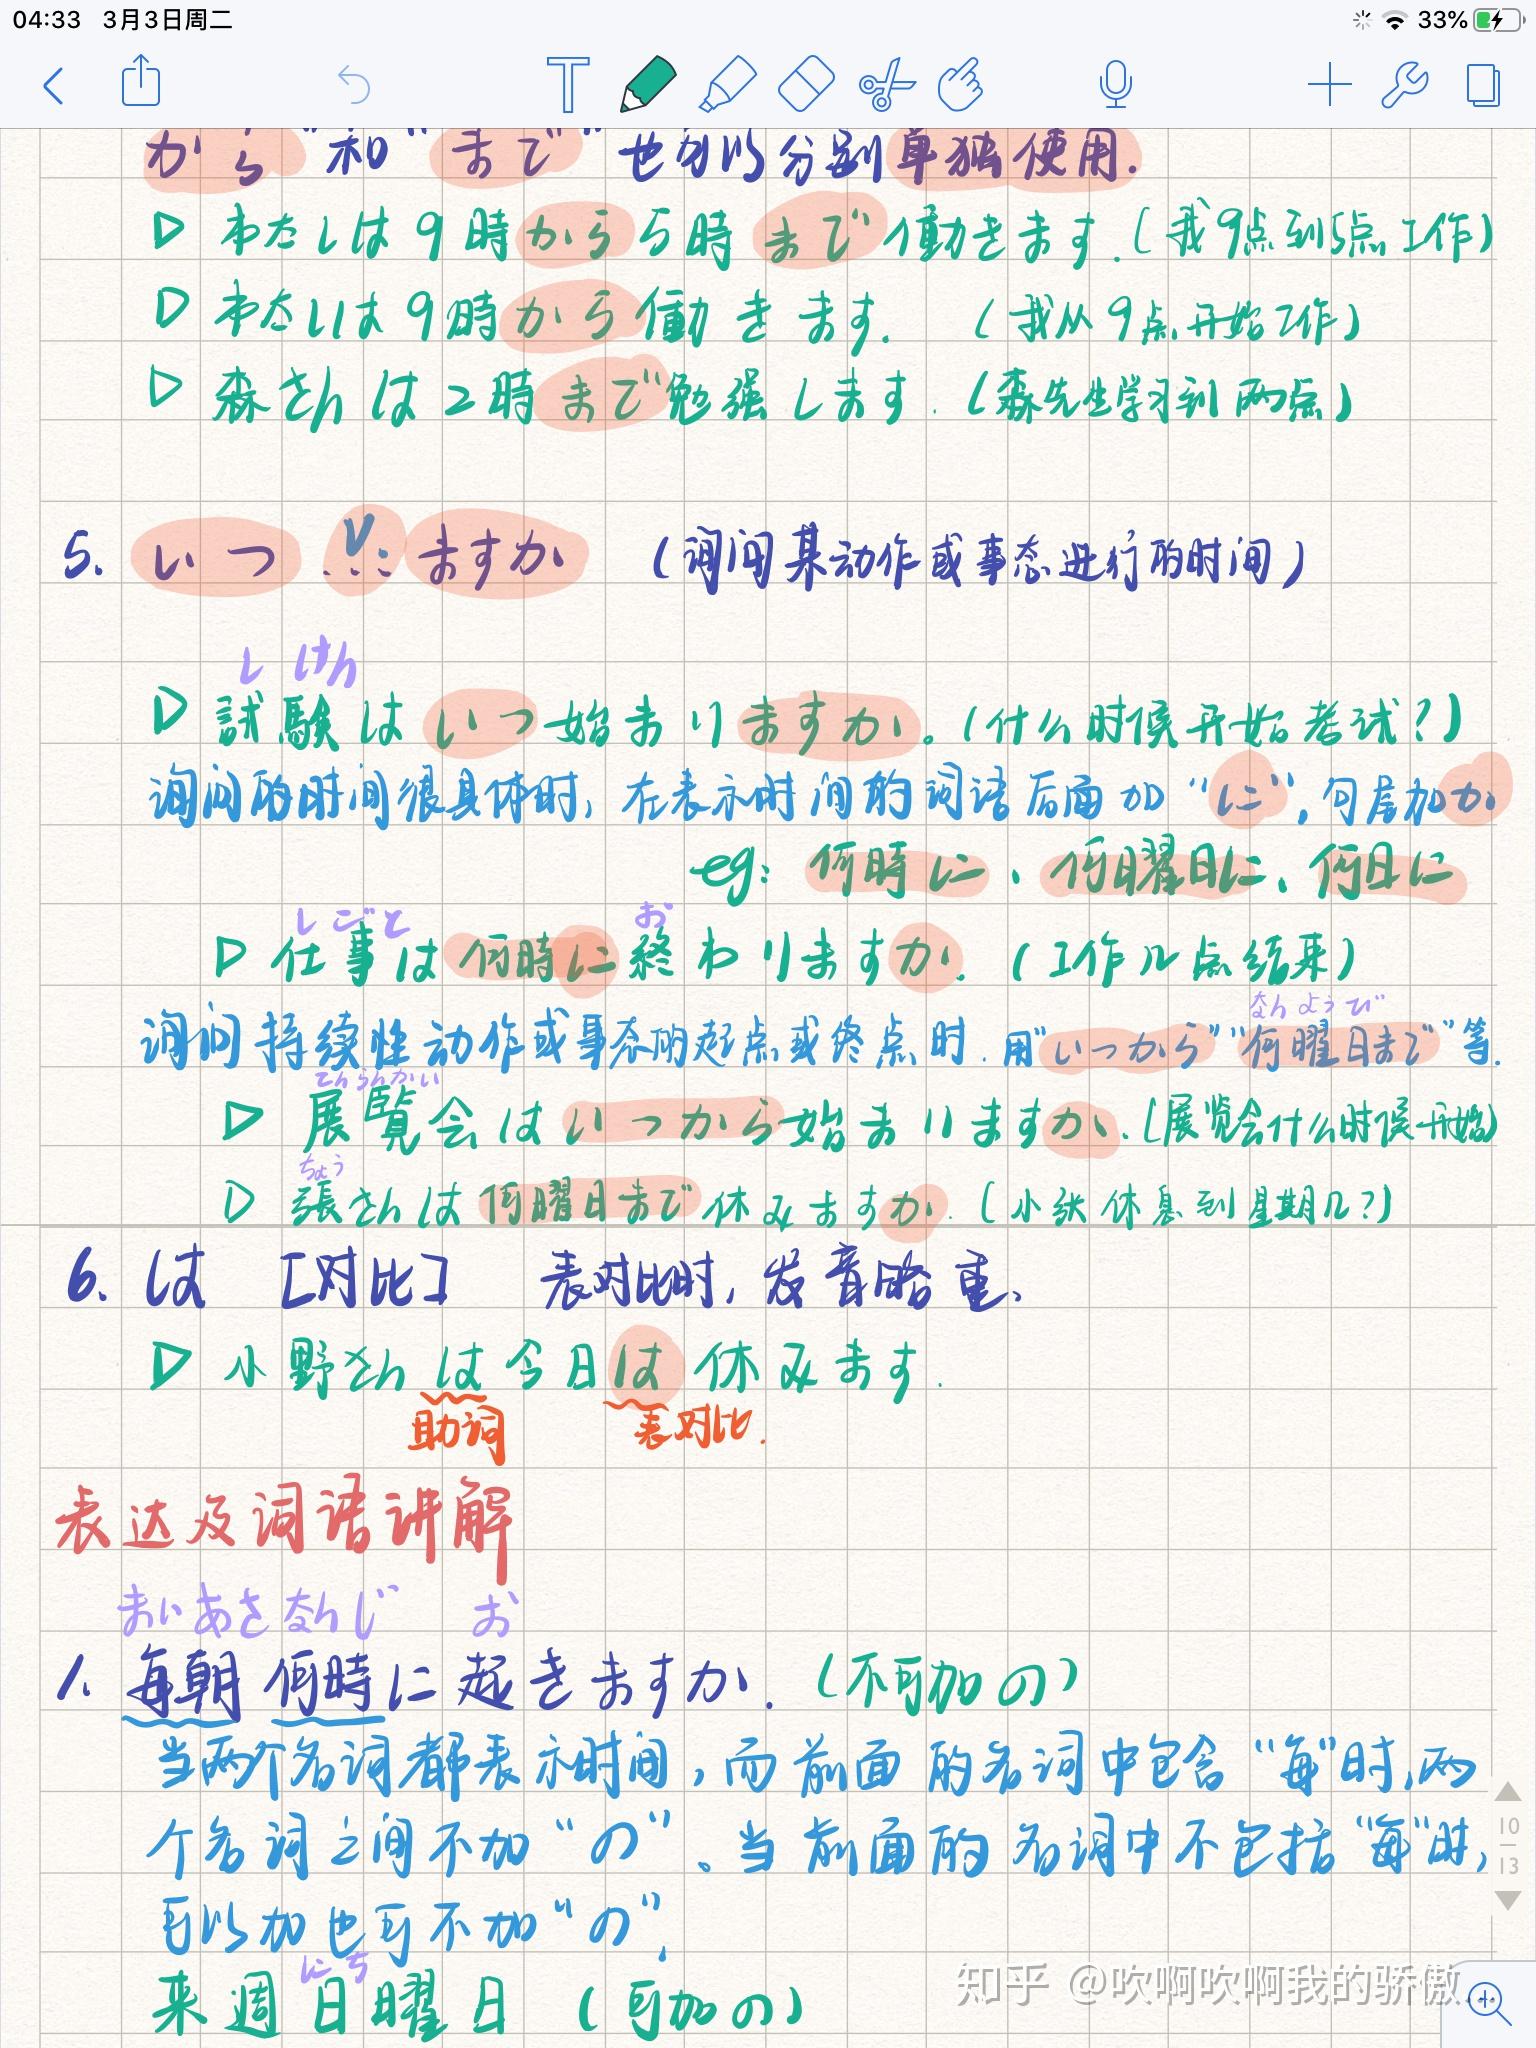 04:33 3月3日周二 33%
から"和"まで"也可以分别单独使用.
▷ わたしは9時から5時まで働きます.(我9点到5点工作)
▷ わたしは9時から働きます. (我从9点开始工作)
▷ 森さんは2時まで勉强します. (森先生学习到两点)
5. いつ V... ますか (询问某动作或事态进行的时间)
し けん
▷ 試験はいつ始まりますか。(什么时候开始考试?)
询问的时间很具体时, 在表示时间的词语后面加"に", 句尾加か
eg: 何時に、何曜日に、何日に
しごと お
▷ 仕事は何時に終わりますか. (工作几点结束)
なんようび
询问持续性动作或事态的起点或终点时. 用"いつから""何曜日まで"等.
てんらんかい
▷ 展覧会はいつから始まりますか.(展览会什么时候开始)
ちょう
▷ 張さんは何曜日まで休みますか. (小张休息到星期几?)
6. は [对比] 表对比时, 发音略重、
▷ 小野さんは今日は休みます.
助词 表对比.
表达及词语讲解
まいあさなんじ お
1. 每朝何時に起きますか. (不可加の)
当两个名词都表示时间, 而前面的名词中包含"每"时, 两
个名词之间不加"の"。当前面的名词中不包括"每"时,
可以加也可不加"の".
にち
来週日曜日 (可加の)
10
13
知乎 @吹啊吹啊我的骄傲